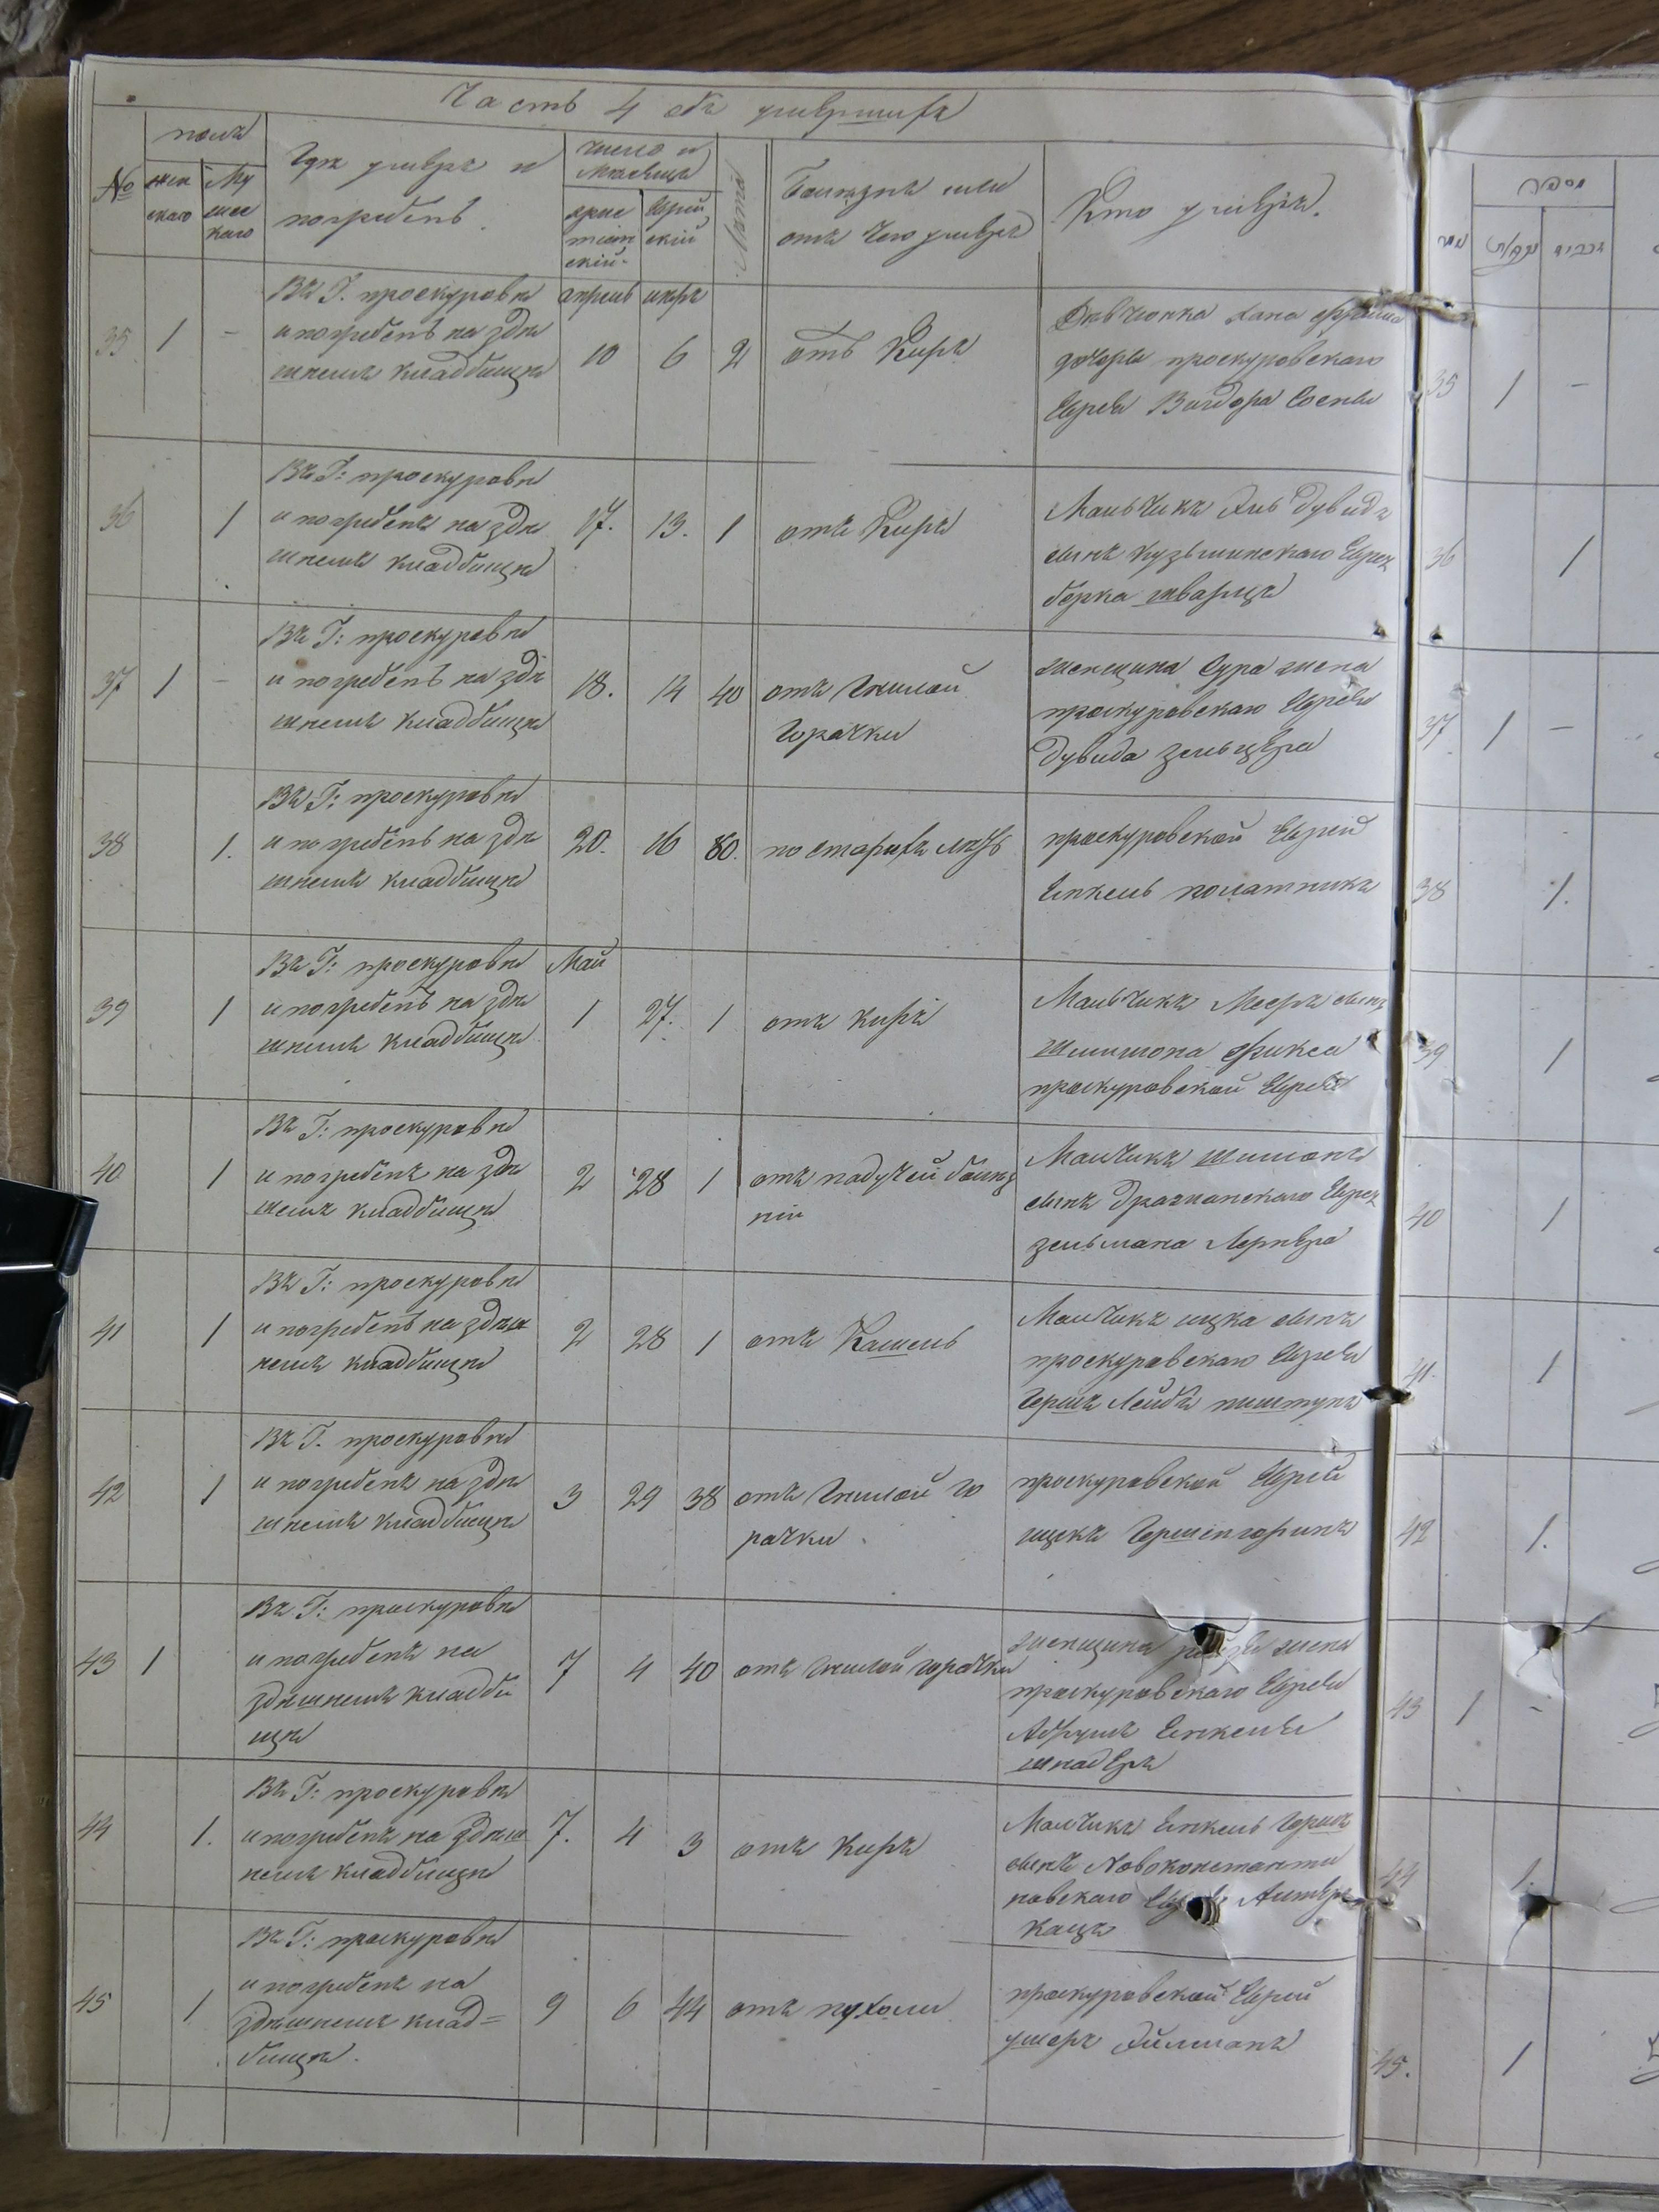 Часть 4 объ умершихъ
№
полъ
жен
скаго
Му
жес
каго
Гдѣ умеръ и
погребенъ.
число и
мѣсяцъ
хрис
тиян
скій.
еврей
скій
Лѣта
Болѣзнь или
отъ чего умеръ
Кто умеръ.
35
1
-
Въ Г. проскуровѣ
и погребенъ на здѣ
шнемъ кладбищѣ
апрель
10
іиаръ
6
2
отъ Кирѣ
Дѣвчонка хана фрейма
дочеръ проскуровскаго
Еврея Вигдора Сосны
36
1
Въ Г: проскуровѣ
и погребенъ на здѣ
шнемъ кладбищѣ
17.
13.
1
отъ Кирѣ
Мальчикъ Эль Дувидъ
сынъ кузьминскаго Еврея
берка шварцъ
37
1
-
Въ Г: проскуровѣ
и погребенъ на здѣ
шнемъ кладбищѣ
18.
14
40
отъ Гнилой
горячки
женщина сура жена
проскуровскаго Еврея
Дувида зельцера
38
1.
Въ Г: проскуровѣ
и погребенъ на здѣ
шнемъ кладбищѣ
20.
16
80.
по старихъ лѣтъ
проскуровской Еврей
Енкель полатникъ
39
1
Въ Г: проскуровѣ
и погребенъ на здѣ
шнемъ кладбищѣ
Май
1
27.
1
отъ кирѣ
Мальчикъ Мееръ сынъ
Шлимона фикса
проскуровской Еврея
40
1
Въ Г: проскуровѣ
и погребенъ на здѣ
шемъ кладбищѣ
2
28
1
отъ падучей болѣз
ній
Малчикъ шимонъ
сынъ Еврея
зельмана Лернера
41
1
Въ Г: проскуровѣ
и погребенъ на здѣш
немъ кладбищѣ
2
28
1
отъ Кашель
Малчикъ ицка сынъ
проскуровскаго Еврея
Гершъ Лейбъ
42
1
Въ Г. проскуровѣ
и погребенъ на здѣ
шнемъ кладбищѣ
3
29
38
отъ Гнилой го
рячки.
проскуровской Еврей
ицекъ Гершенгоринъ
43
1
Въ Г: проскуровѣ
и погребенъ на
здѣшнемъ кладби
щѣ
7
4
40
отъ Гнилой горячки
женщина жена
проскуровскаго Еврея
Абрумъ Енкель
шнадеръ
44
1.
Въ Г: проскуровѣ
и погребенъ на здѣш
немъ кладбищѣ
7.
4
3
отъ Кирѣ
Малчикъ Енкель Гершъ
сынъ Новоконстанти
новскаго
Кацъ
45
1
Въ Г: проскуровѣ
и погребенъ на
здѣшнемъ клад=
бищѣ.
9
6
44
отъ пухоли
проскуровской Еврей
ушеръ Эйлманъ
35
1
-
36
1
37
1
-
38
1.
39
1
40
1
41.
1
42
1.
43
1
-
44
1.
45.
1